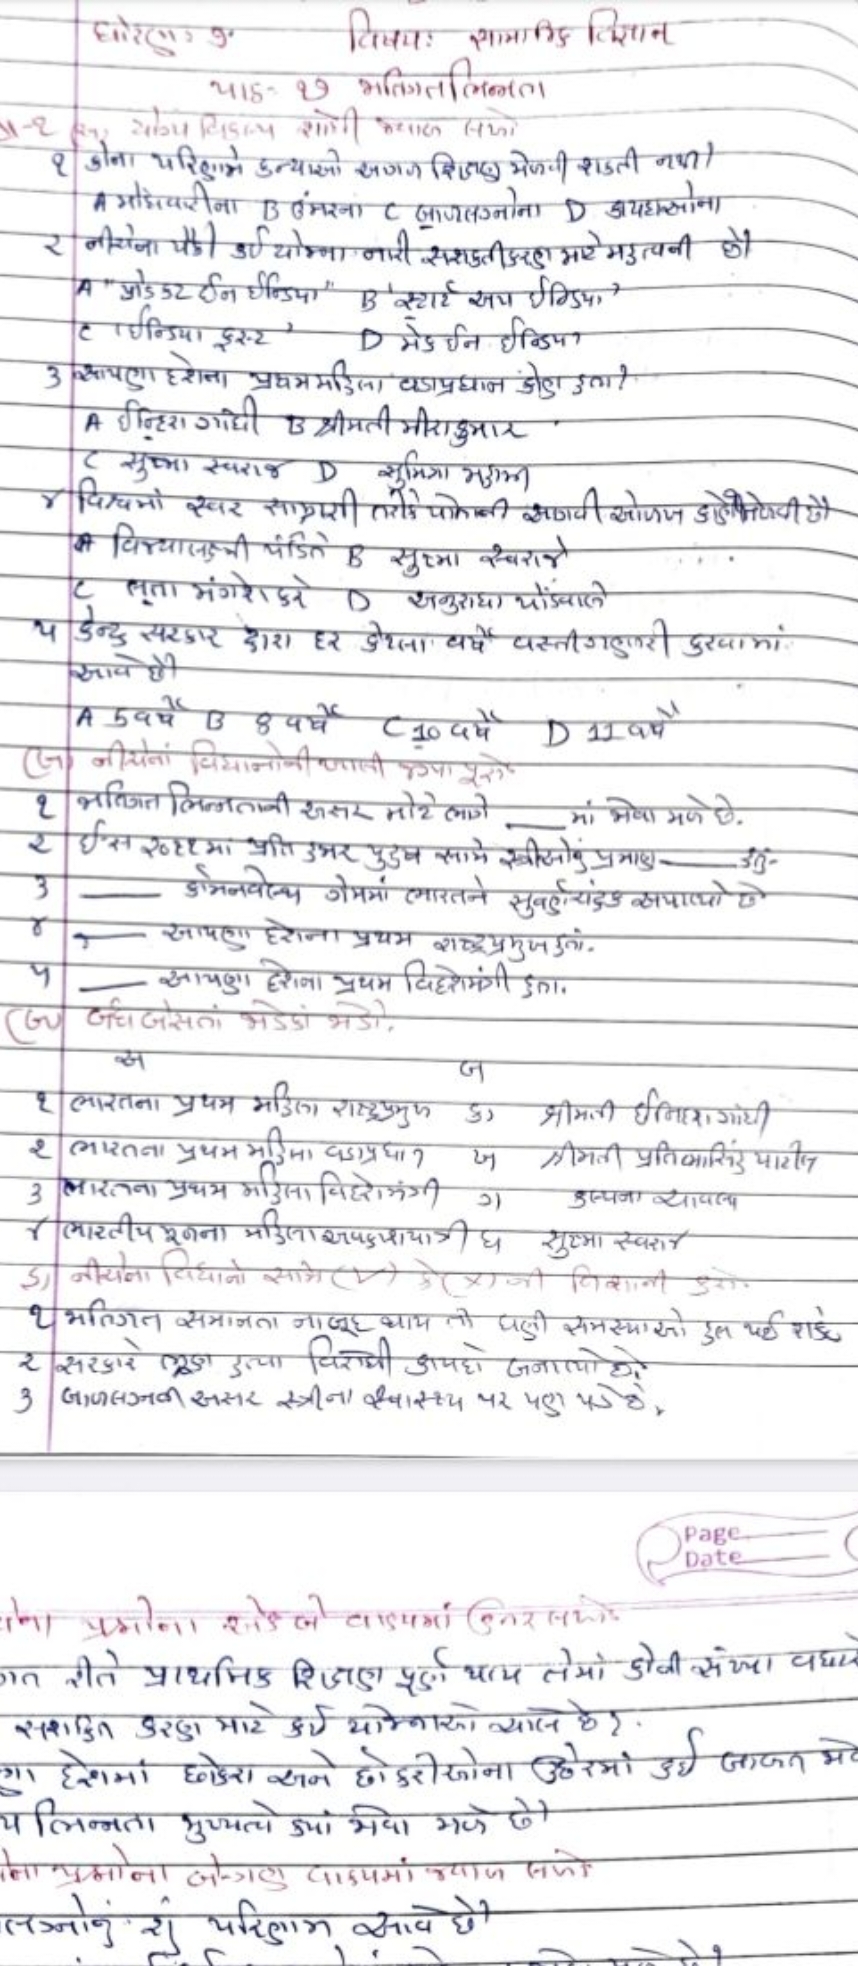 ધોરણ: ૭. વિષય: સામાજિક વિજ્ઞાન
પાઠ- ૧૭ જાતિગત ભિન્નતા
(અ) યોગ્ય વિકલ્પ શોધી જવાબ લખો
૧ કોના પરિણામે કન્યાઓ આગળ શિક્ષણ મેળવી શકતી નથી?
A મોંઘવારીના B ઉંમરના C બાળલગ્નોના D કાયદાઓના
૨ નીચેના પૈકી કઈ યોજના નારી સશક્તીકરણ માટે મહત્વની છે?
A "પ્રોડક્ટ ઈન ઈન્ડિયા" B 'સ્ટાર્ટ અપ ઈન્ડિયા'
C 'ઈન્ડિયા ફસ્ટ' D મેક ઈન ઈન્ડિયા
૩ આપણા દેશના પ્રથમ મહિલા વડાપ્રધાન કોણ હતા?
A ઈન્દિરા ગાંધી B શ્રીમતી મીરાકુમાર
C સુષ્મા સ્વરાજ D સુમિત્રા મહાજન
૪ વિશ્વમાં સ્વર સામ્રાજ્ઞી તરીકે પોતાની આગવી ઓળખ કોણે મેળવી છે?
A વિજ્યાલક્ષ્મી પંડિતે B સુષ્મા સ્વરાજે
C લતા મંગેશકરે D અનુરાધા પોંડવાલે
૫ કેન્દ્ર સરકાર દ્વારા દર કેટલા વર્ષે વસ્તી ગણતરી કરવામાં
આવે છે?
A 5 વર્ષે B 8 વર્ષે C 10 વર્ષે D 11 વર્ષે
(બ) નીચેનાં વિધાનોની ખાલી જગ્યા પૂરો
૧ જાતિગત ભિન્નતાની અસર મોટે ભાગે ___ માં જોવા મળે છે.
૨ ઈ.સ ૨૦૧૧માં પ્રતિ હજાર પુરુષ સામે સ્ત્રીઓનું પ્રમાણ ___ હતું.
૩ ___ કોમનવેલ્થ ગેમમાં ભારતને સુવર્ણચંદ્રક અપાવ્યો છે
૪ ___ આપણા દેશના પ્રથમ રાષ્ટ્રપ્રમુખ હતા.
૫ ___ આપણા દેશના પ્રથમ વિદેશમંત્રી હતા.
(ક) બંધ બેસતાં જોડકાં જોડો.
અ બ
૧ ભારતના પ્રથમ મહિલા રાષ્ટ્રપ્રમુખ ક) શ્રીમતી ઈન્દિરા ગાંધી
૨ ભારતના પ્રથમ મહિલા વડાપ્રધાન ખ શ્રીમતી પ્રતિભાસિંહ પાટીલ
૩ ભારતના પ્રથમ મહિલા વિદેશમંત્રી ગ) કલ્પના ચાવલા
૪ ભારતીય મૂળના મહિલા અવકાશયાત્રી ઘ સુષ્મા સ્વરાજ
ડ) નીચેના વિધાનો સામે (✓) કે (×) ની નિશાની કરો.
૧ જાતિગત સમાનતા નાબૂદ થાય તો ઘણી સમસ્યાઓ હલ થઈ શકે
૨ સરકારે ભ્રૂણ હત્યા વિરોધી કાયદો બનાવ્યો છે.
૩ બાળલગ્નની અસર સ્ત્રીના સ્વાસ્થ્ય પર પણ પડે છે.
Page
Date
પ્રશ્નોના એક બે વાક્યમાં ઉત્તર લખો
ગત રીતે પ્રાથમિક શિક્ષણ પૂર્ણ થાય તેમાં કોની સંખ્યા વધારે
સશક્તિકરણ માટે કઈ યોજનાઓ ચાલે છે?
દેશમાં છોકરા અને છોકરીઓના ઉછેરમાં કઈ બાબત
ય ભિન્નતા મુખ્યત્વે ક્યાં જોવા મળે છે?
પ્રશ્નોના બે-ત્રણ વાક્યમાં જવાબ લખો
લગ્નોનું શું પરિણામ આવે છે?